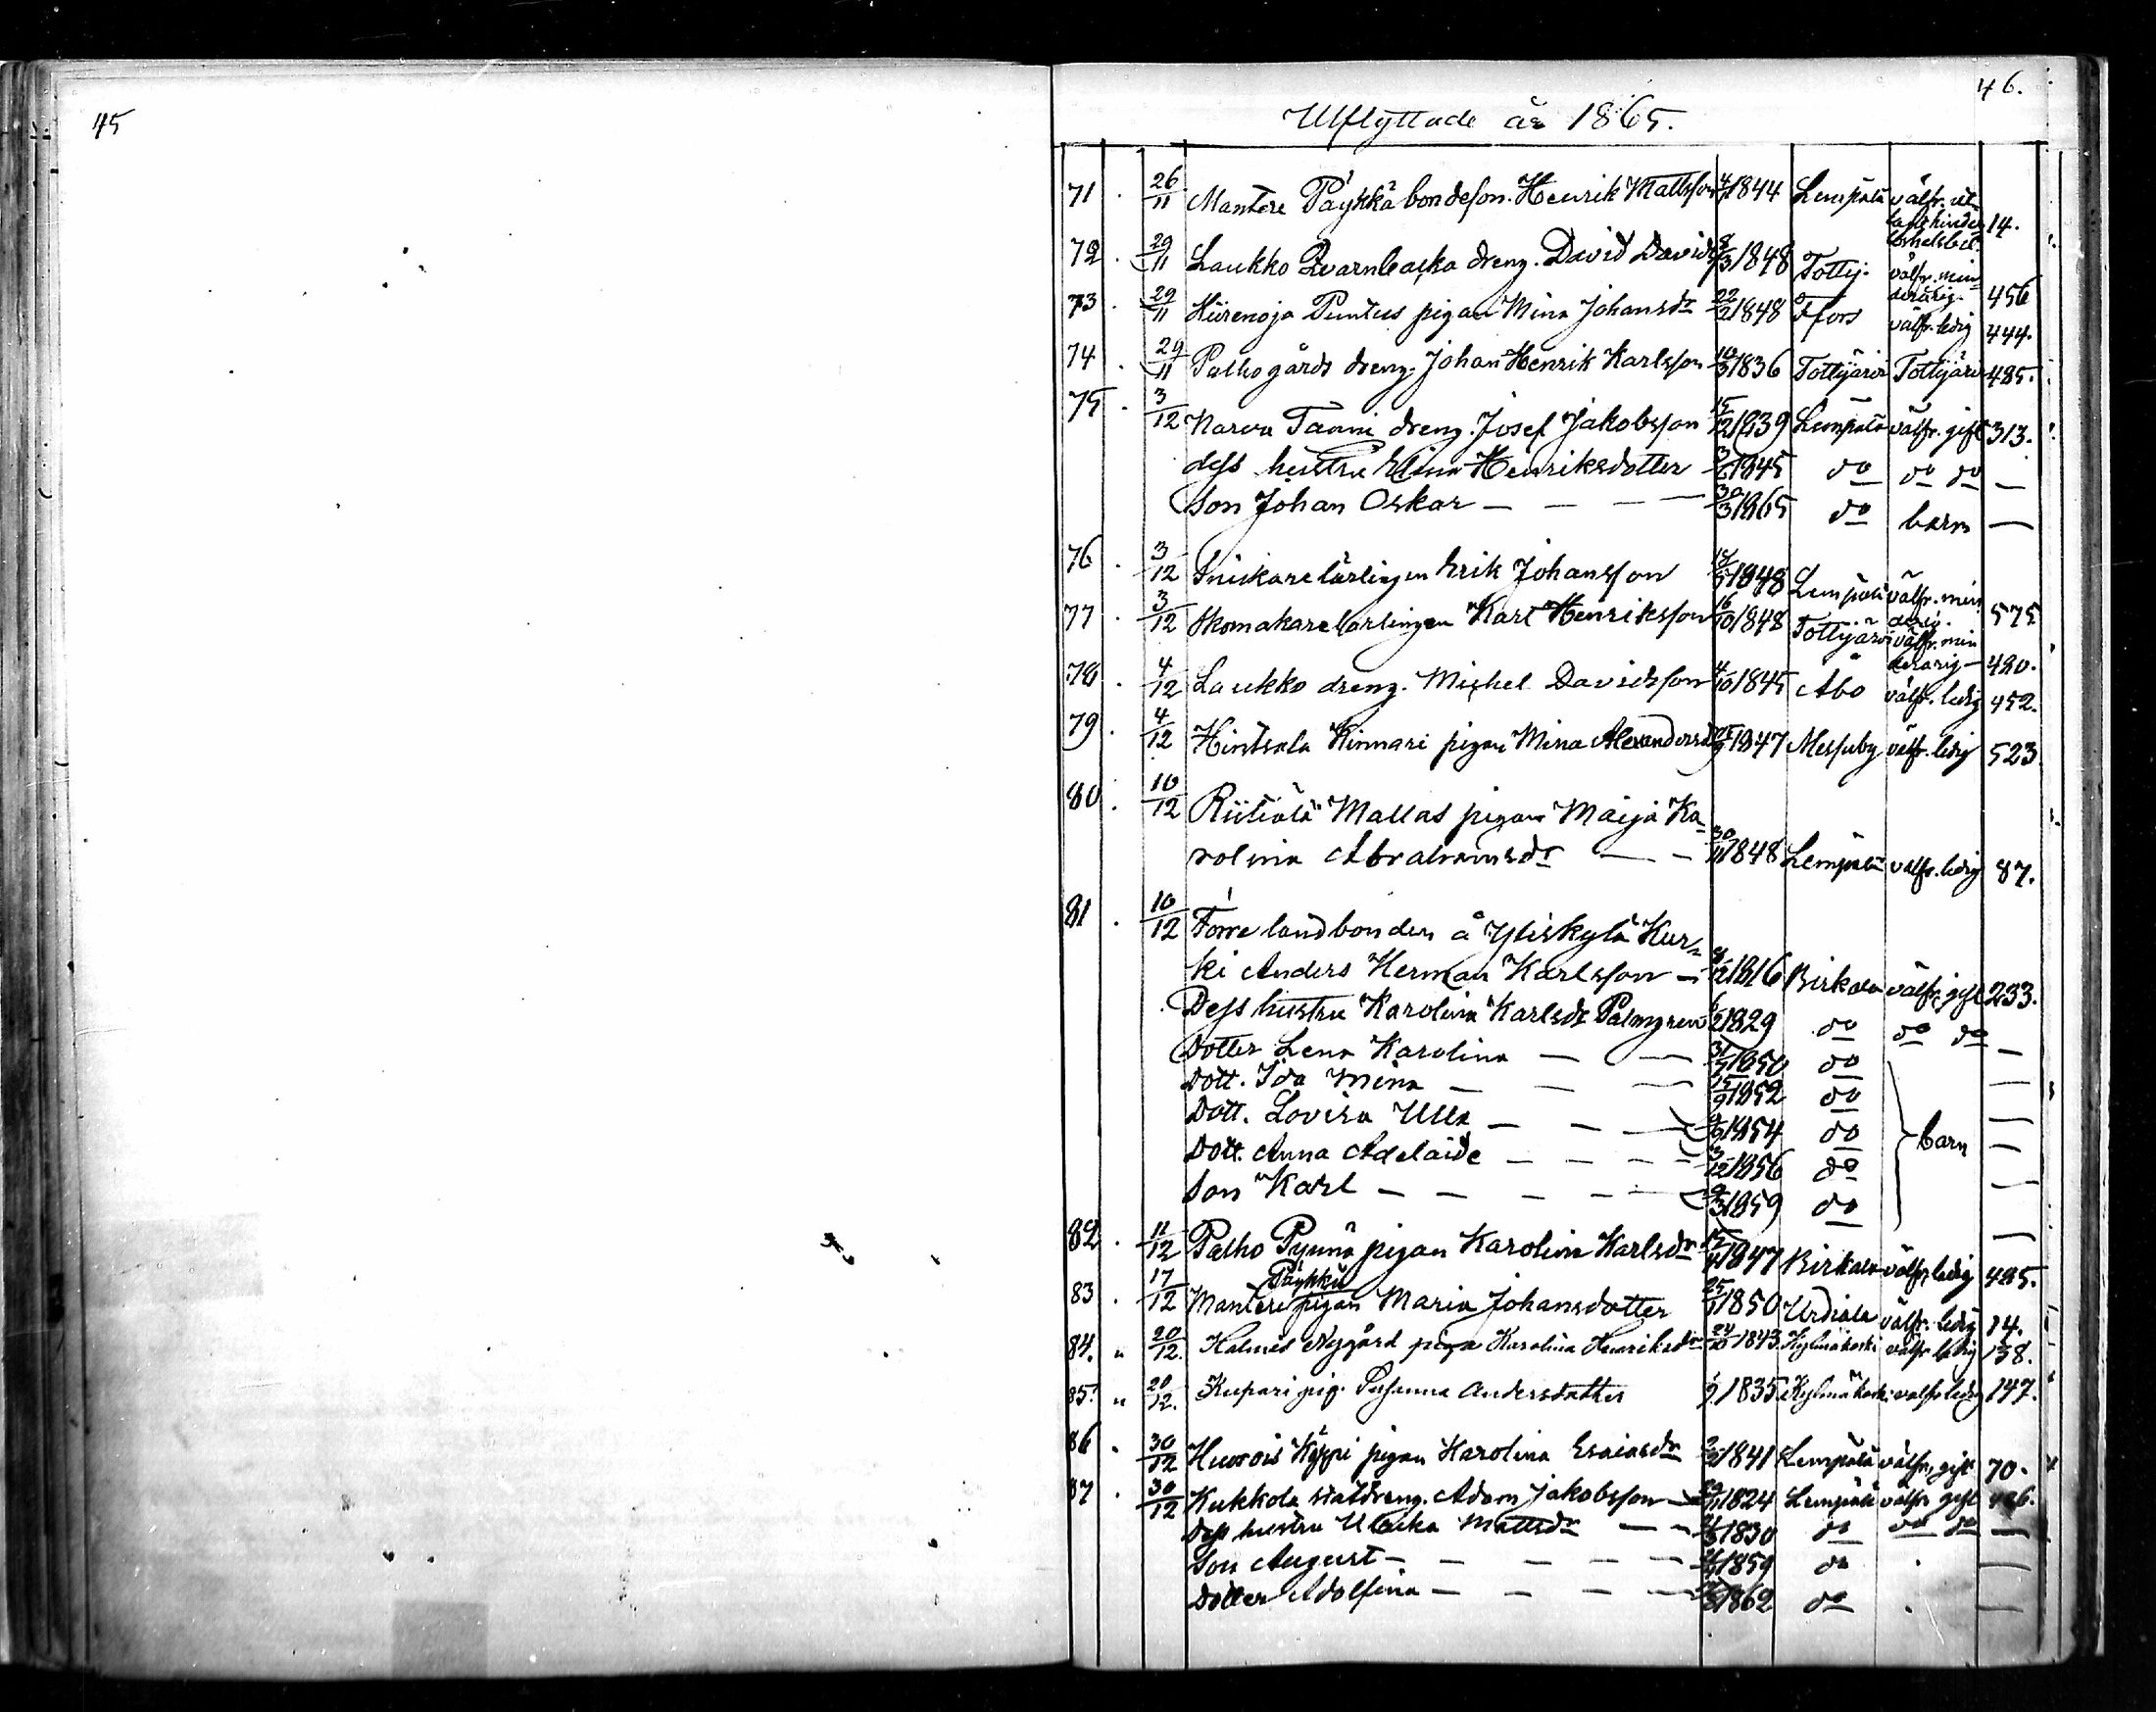 45
46.
Utflyttade år 1865.
71 . 26/11 Mantere Päykkä bondeson. Henrik Mattsson 1844 Lempälä välfr. 14.
72 . 29/11 Laukko Qvarnbacka dreng. David Davids 8/3 1848 Tottij. välfr. min-
derårig. 456
73 . 29/11 Hiirenoja Puntus pigan Mina Johansdr 22/2 1848 Tfors välfr. ledig 444.
74 . 29/11 Palho gårds dreng. Johan Henrik Karlsson 10/3 1836 Tottijärvi Tottijärvi 485.
75 . 3/12 Narva Tanni dreng. Josef Jakobsson 15/12 1839 Lempälä välfr. gift 313.
dess hustru Elina Henriksdotter 1845 do do do —
Son Johan Oskar — — — 30/3 1865 do barn —
76 . 3/12 Snickarelärlingen Erik Johansson 1848 Lempälä välfr. min
derårig. 575
77 . 3/12 Skomakarelärlingen Karl Henriksson 16/10 1848 Tottijärvi välfr. min
derårig — 420.
78 . 4/12 Laukko dreng. Michel Davidsson 4/10 1845 Åbo välfr. ledig 452.
79 . 4/12 Hintsala Kinnari pigan Mina Alexandersd 1847 Messuby välfr. ledig 523
80 . 10/12 Riitiala Mallas pigan Maija Ka-
rolina Abrahamsdr — — 30/11 1848 Lempälä välfr. ledig 87.
81 . 10/12 Förre landbonden å Yliskylä Kur-
ki Anders Herman Karlsson — 1816 Birkala välfr. gift 233.
Dess hustru Karolina Karlsdr Palmgren 1829 do do do —
Dotter Lena Karolina — — 31/5 1850 do —
Dott. Ida Mina — — 15/9 1852 do —
Dott. Lovisa Ulla — — — 1854 do barn —
Dott. Anna Adelaide — — — — 3/12 1856 do —
Son Karl — — — — — 1859 do —
82 . 11/12 Palho Pynnä pigan Karolina Karlsdr 1847 Birkala välfr. ledig 485.
Päykkü
83 . 17/12 Mantere pigan Maria Johansdotter 1850 Urdiala välfr. ledig 14.
84. " 20/12. Halmes Nygård piga Karolina Henriksdr 1843. Kylmäkoski välfr. ledig 138.
85. " 20/12. Kupari pig. Susanna Andersdotter 1835 Kylmäkoski välfr. ledig 147.
86 . 30/12 Huovois Köppi pigan Karolina Esaiasdr 1841 Lempälä välfr. gift 70.
87 . 30/12 Kukkola statdreng. Adam Jakobsson — 1824 Lempälä välfr. gift
Dess hustru Ulrika Mattsdr — — 1830 do do do —
Son August — — — — — 1859 do . —
Dotter Adolfina — — — — 1862 do . —